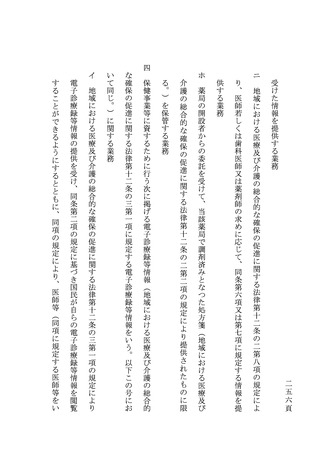 二五六頁
受けた情報を提供する業務
ニ　地域における医療及び介護の総合的な確保の促進に関する法律第十二条の二第八項の規定によ
り、医師若しくは歯科医師又は薬剤師の求めに応じて、同条第六項又は第七項に規定する情報を提
供する業務
ホ　薬局の開設者からの委託を受けて、当該薬局で調剤済みとなつた処方箋（地域における医療及び
介護の総合的な確保の促進に関する法律第十二条の二第二項の規定により提供されたものに限
る。）を保管する業務
四　保健事業等に資するために行う次に掲げる電子診療録等情報（地域における医療及び介護の総合的
な確保の促進に関する法律第十二条の三第一項に規定する電子診療録等情報をいう。以下この号にお
いて同じ。）に関する業務
イ　地域における医療及び介護の総合的な確保の促進に関する法律第十二条の三第一項の規定により
電子診療録等情報の提供を受け、同条第二項の規定に基づき国民が自らの電子診療録等情報を閲覧
することができるようにするとともに、同項の規定により、医師等（同項に規定する医師等をい